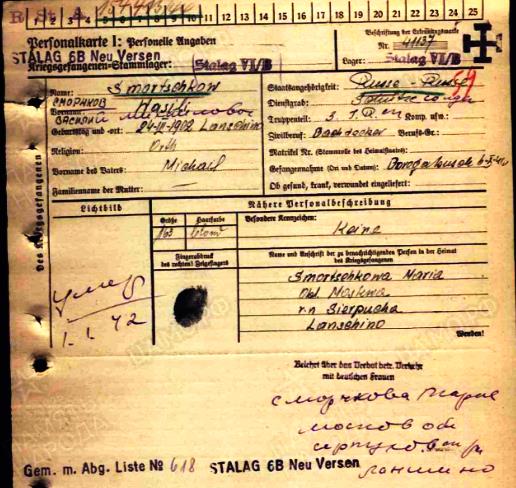 1 2 3 4 5 6 7 8 9 10 11 12 13 14 15 16 17 18 19 20 21 22 23 24 25
Personalkarte I: Personelle Angaben
Beschriftung der Erkennungsmarke
Nr. 41137
STALAG 6B Neu Versen
Kriegsgefangenen-Stammlager: Stalag VI/B
Lager: Stalag VI/B
Des Kriegsgefangenen
Name: Smortschkow
Staatsangehörigkeit: Russe
Vorname:
Dienstgrad:
Truppenteil: Komp. usw.:
Geburtstag und -ort: 24-III-1902 Lanschino
Zivilberuf: Berufs-Gr.:
Religion: Orth
Matrikel Nr. (Stammrolle des Heimatstaates):
Vorname des Vaters: Michail
Gefangennahme (Ort und Datum):
Familienname der Mutter: —
Ob gesund, krank, verwundet eingeliefert:
Lichtbild
Nähere Personalbeschreibung
Größe
Haarfarbe
Besondere Kennzeichen:
163
blond
Keine
Fingerabdruck
des rechten! Zeigefingers
Name und Anschrift der zu benachrichtigenden Person in der Heimat
des Kriegsgefangenen
Smortschkowa Maria
Obl Moskwa
r-n Sierpucha
Lanschino
Wenden!
умер
1.1.42
Belehrt über das Verbot betr. Verkehr
mit deutschen Frauen
Сморчкова Мария
Москов об
Лоншино
Gem. m. Abg. Liste № 618 STALAG 6B Neu Versen